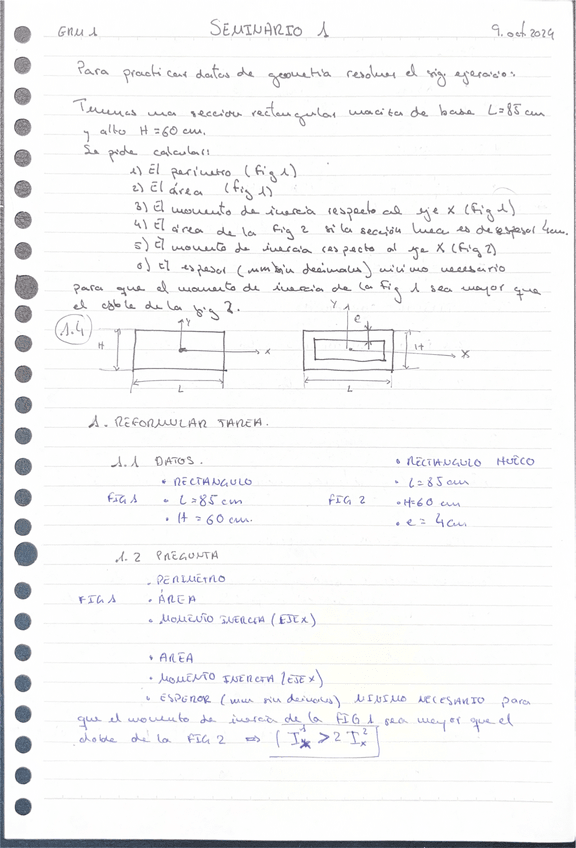 GRU 1 SEMINARIO 1 9. oct 2024
Para practicar datos de geometría resolver el sig. ejercicio:
Tenemos una sección rectangular maciza de base L=85 cm
y alto H=60 cm.
Se pide calcular:
1) El perímetro (fig 1)
2) El área (fig 1)
3) El momento de inercia respecto al eje X (fig 1)
4) El área de la Fig 2 si la sección hueca es de espesor 4cm.
5) El momento de inercia respecto al eje X (fig 2)
6) El espesor (mm sin decimales) mínimo necesario
para que el momento de inercia de la Fig 1 sea mayor que
el doble de la fig 2.
1.4
H Y X L
Y e H X L
1. REFORMULAR TAREA.
1.1 DATOS.
FIG 1
• RECTANGULO
• L=85 cm
• H = 60 cm.
FIG 2
• RECTANGULO HUECO
• L=85 cm
• H=60 cm
• e = 4cm
1.2 PREGUNTA
FIG 1
• PERIMETRO
• ÁREA
• MOMENTO INERCIA (EJE X)
• AREA
• MOMENTO INERCIA (EJE X)
• ESPEROR (mm sin decimales) MINIMO NECESARIO para
que el momento de inercia de la FIG 1 sea mayor que el
doble de la FIG 2 ⇔ ( I¹ₓ > 2 I²ₓ